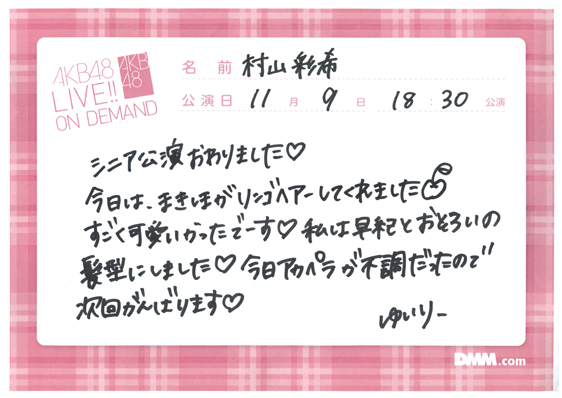 AKB48
LIVE!!
ON DEMAND
AKB
48
名前 村山彩希
公演日 11月9日 18:30公演
シニア公演おわりました♡
今日は、まきほがリンゴヘアーしてくれました
すごく可愛いかったでーす♡私は早紀とおそろいの
髪型にしました♡今日アカペラが不調だったので
次回がんばります♡
ゆいりー
DMM.com